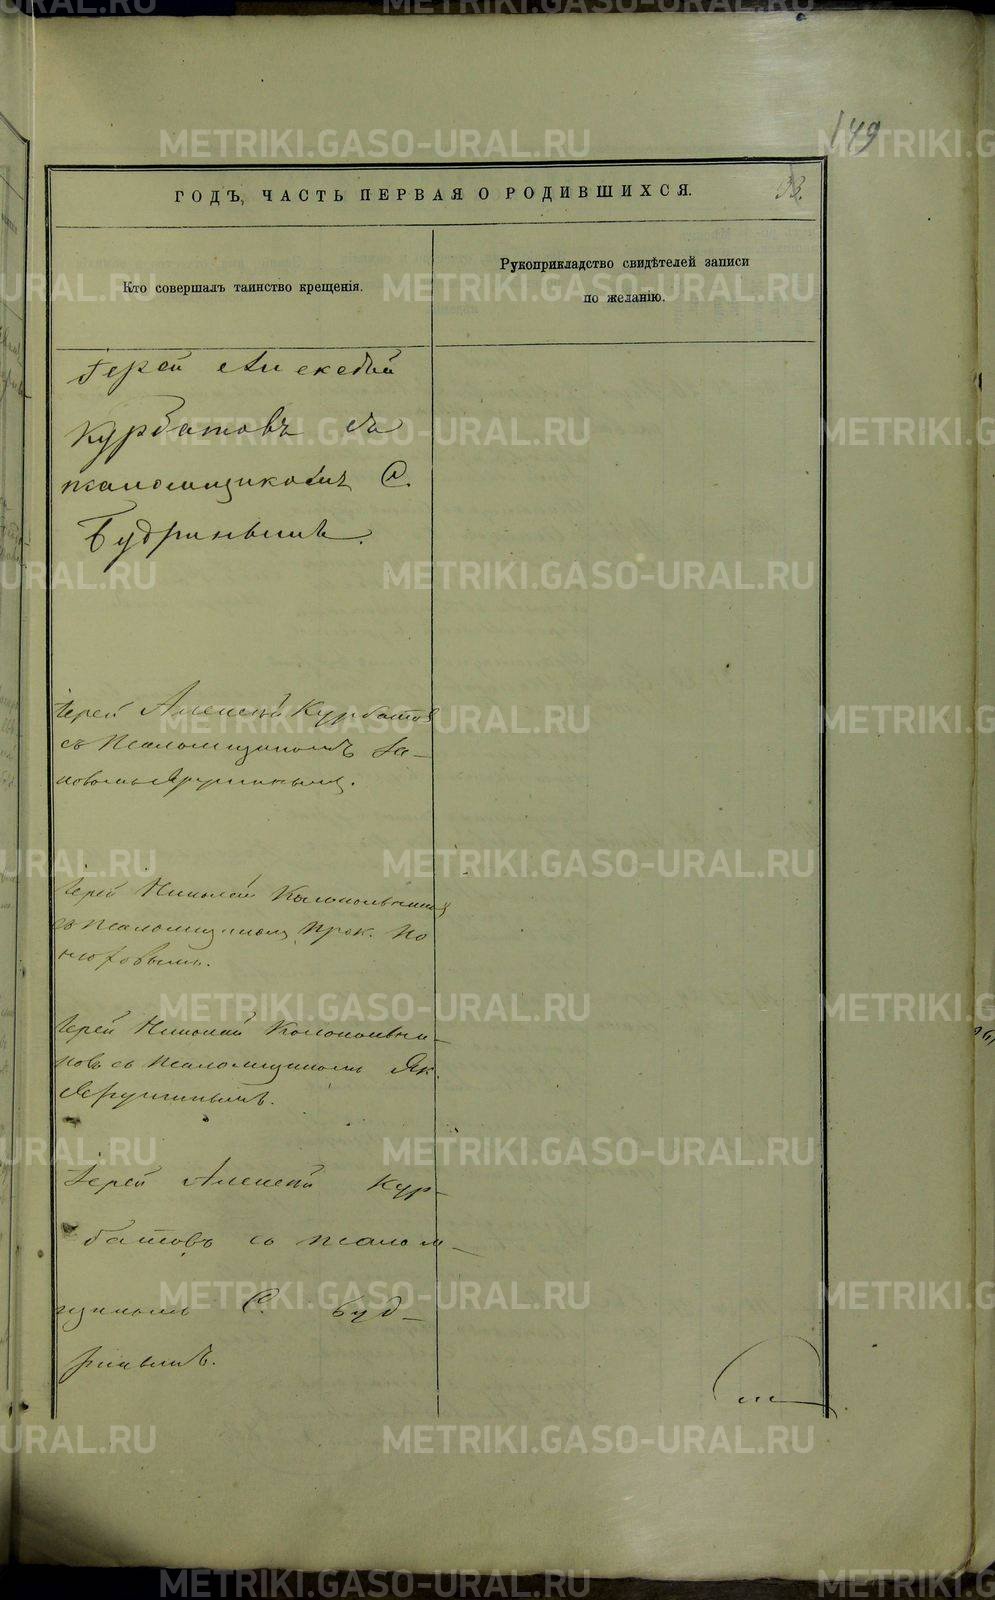 149
ГОДЪ, ЧАСТЬ ПЕРВАЯ О РОДИВШИХСЯ.
93.
Кто совершалъ таинство крещенія.
Рукоприкладство свидѣтелей записи
по желанію.
Іерей Алексѣй
Курбатовъ съ
псаломщикомъ С.
Будринымъ.
Іерей Алексѣй Курбатов
съ Псаломщикомъ Іа-
ковомъ Ярушинымъ.
Іерей Николай Колокольников
съ псаломщикомъ Прок. По
номъ.
Іерей Николай Колокольни-
ковъ съ Псаломщикомъ Як.
Ярушинымъ.
Іерей Алексѣй Кур-
батовъ съ псалом-
щикомъ С. Буд-
ринымъ.
METRIKI.GASO-URAL.RU